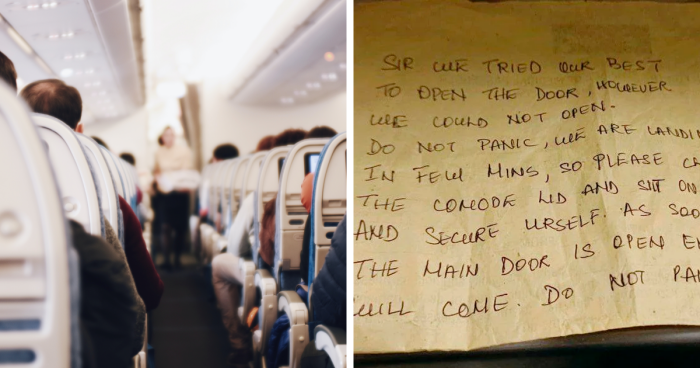 SIR WE TRIED OUR BEST
TO OPEN THE DOOR, HOWEVER
WE COULD NOT OPEN.
DO NOT PANIC, WE ARE LANDIN
IN FEW MINS, SO PLEASE
THE COMODE LID AND SIT ON
AND SECURE URSELF. AS SOO
THE MAIN DOOR IS OPEN
WILL COME. DO NOT PA